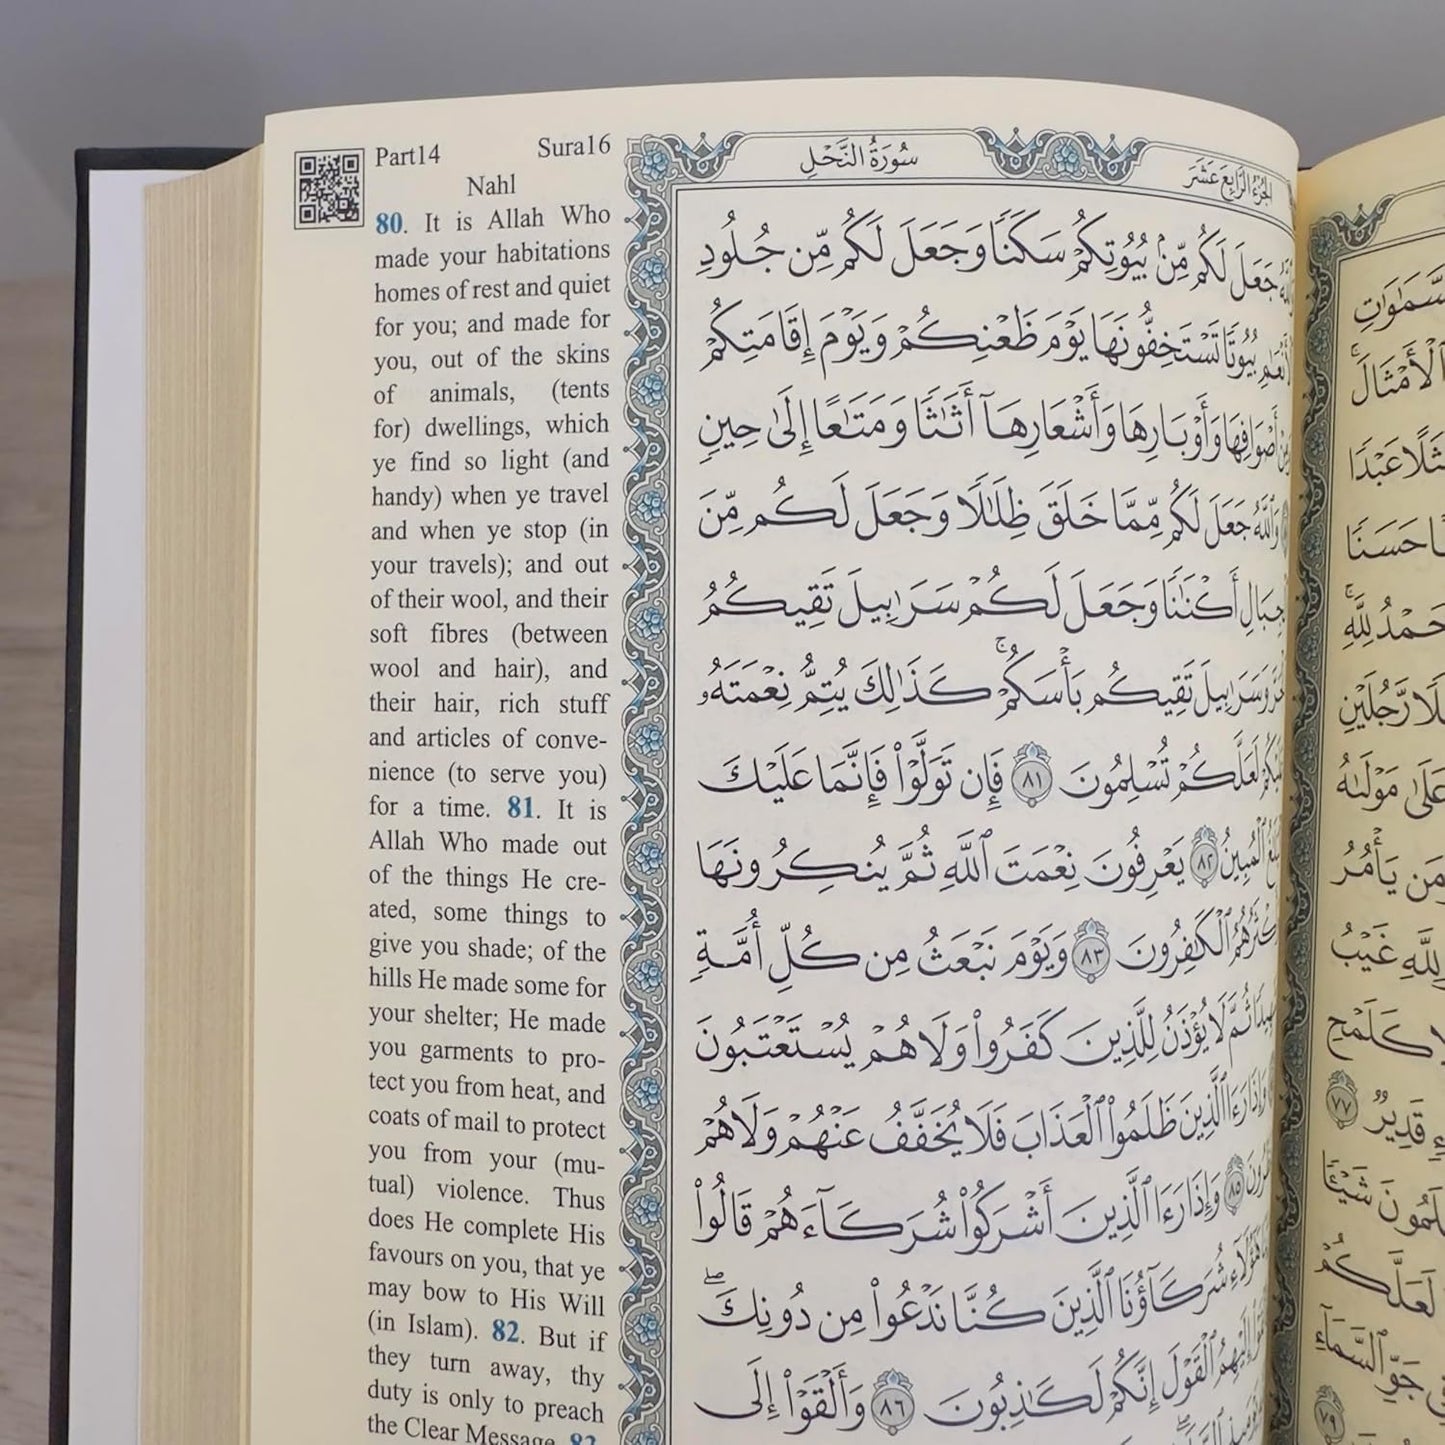 Part14 Sura16
Nahl
80. It is Allah Who
made your habitations
homes of rest and quiet
for you; and made for
you, out of the skins
of animals, (tents
for) dwellings, which
ye find so light (and
handy) when ye travel
and when ye stop (in
your travels); and out
of their wool, and their
soft fibres (between
wool and hair), and
their hair, rich stuff
and articles of conve-
nience (to serve you)
for a time. 81. It is
Allah Who made out
of the things He cre-
ated, some things to
give you shade; of the
hills He made some for
your shelter; He made
you garments to pro-
tect you from heat, and
coats of mail to protect
you from your (mu-
tual) violence. Thus
does He complete His
favours on you, that ye
may bow to His Will
(in Islam). 82. But if
they turn away, thy
duty is only to preach
the Clear Message. 83.
الجزء الرابع عشر سورة النحل
جَعَلَ لَكُم مِّنۢ بُيُوتِكُمْ سَكَنًا وَجَعَلَ لَكُم مِّن جُلُودِ
بُيُوتًا تَسْتَخِفُّونَهَا يَوْمَ ظَعْنِكُمْ وَيَوْمَ إِقَامَتِكُمْ
أَصْوَافِهَا وَأَوْبَارِهَا وَأَشْعَارِهَآ أَثَٰثًا وَمَتَٰعًا إِلَىٰ حِينٍ
وَٱللَّهُ جَعَلَ لَكُم مِّمَّا خَلَقَ ظِلَٰلًا وَجَعَلَ لَكُم مِّنَ
أَكْنَٰنًا وَجَعَلَ لَكُمْ سَرَٰبِيلَ تَقِيكُمُ
وَسَرَٰبِيلَ تَقِيكُم بَأْسَكُمْ ۚ كَذَٰلِكَ يُتِمُّ نِعْمَتَهُۥ
لَعَلَّكُمْ تُسْلِمُونَ ٨١ فَإِن تَوَلَّوْا۟ فَإِنَّمَا عَلَيْكَ
ٱلْمُبِينُ ٨٢ يَعْرِفُونَ نِعْمَتَ ٱللَّهِ ثُمَّ يُنكِرُونَهَا
ٱلْكَٰفِرُونَ ٨٣ وَيَوْمَ نَبْعَثُ مِن كُلِّ أُمَّةٍ
ثُمَّ لَا يُؤْذَنُ لِلَّذِينَ كَفَرُوا۟ وَلَا هُمْ يُسْتَعْتَبُونَ
وَإِذَا رَءَا ٱلَّذِينَ ظَلَمُوا۟ ٱلْعَذَابَ فَلَا يُخَفَّفُ عَنْهُمْ وَلَا هُمْ
٨٥ وَإِذَا رَءَا ٱلَّذِينَ أَشْرَكُوا۟ شُرَكَآءَهُمْ قَالُوا۟
هَٰٓؤُلَآءِ شُرَكَآؤُنَا ٱلَّذِينَ كُنَّا نَدْعُوا۟ مِن دُونِكَ ۖ
إِلَيْهِمُ ٱلْقَوْلَ إِنَّكُمْ لَكَٰذِبُونَ ٨٦ وَأَلْقَوْا۟ إِلَى
ٱلْأَمْثَالَ ۚ
عَبْدًا
حَسَنًا
رَّجُلَيْنِ
عَلَىٰ مَوْلَىٰهُ
وَمَن يَأْمُرُ
غَيْبُ
كَلَمْحِ
قَدِيرٌ ٧٧
شَيْـًٔا
لَعَلَّكُمْ
جَوِّ ٱلسَّمَآءِ
٧٩